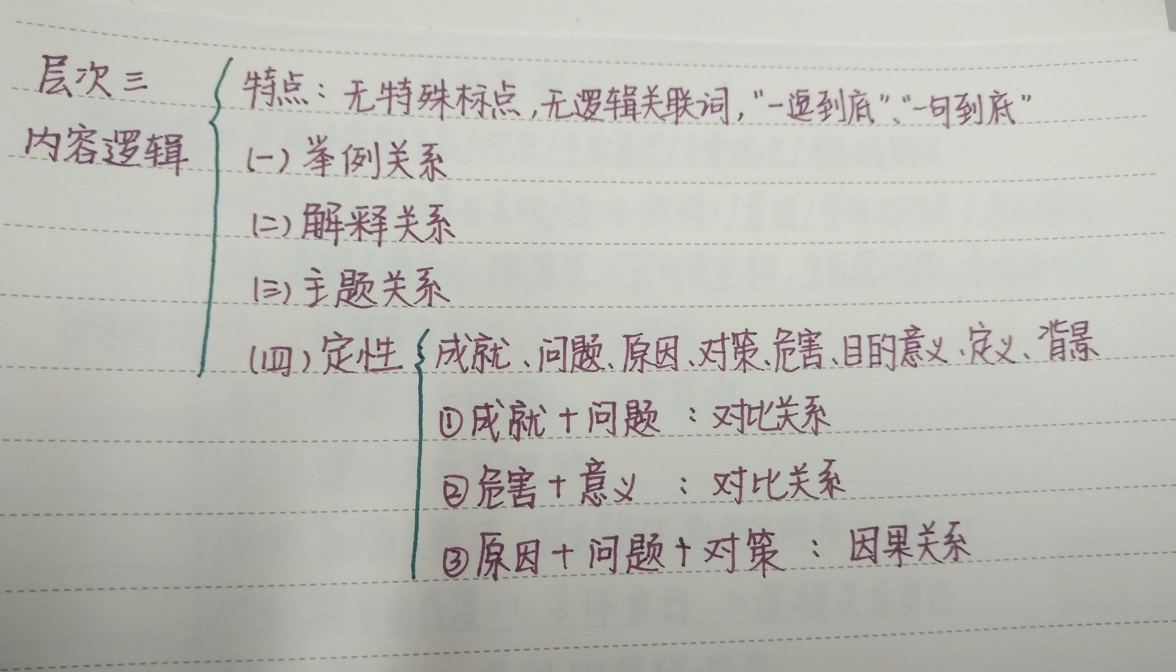 层次三
内容逻辑
特点：无特殊标点,无逻辑关联词,“一逗到底”、“一句到底”
(一) 举例关系
(二) 解释关系
(三) 主题关系
(四) 定性
成就、问题、原因、对策、危害、目的意义、定义、背景
①成就+问题：对比关系
②危害+意义：对比关系
③原因+问题+对策：因果关系